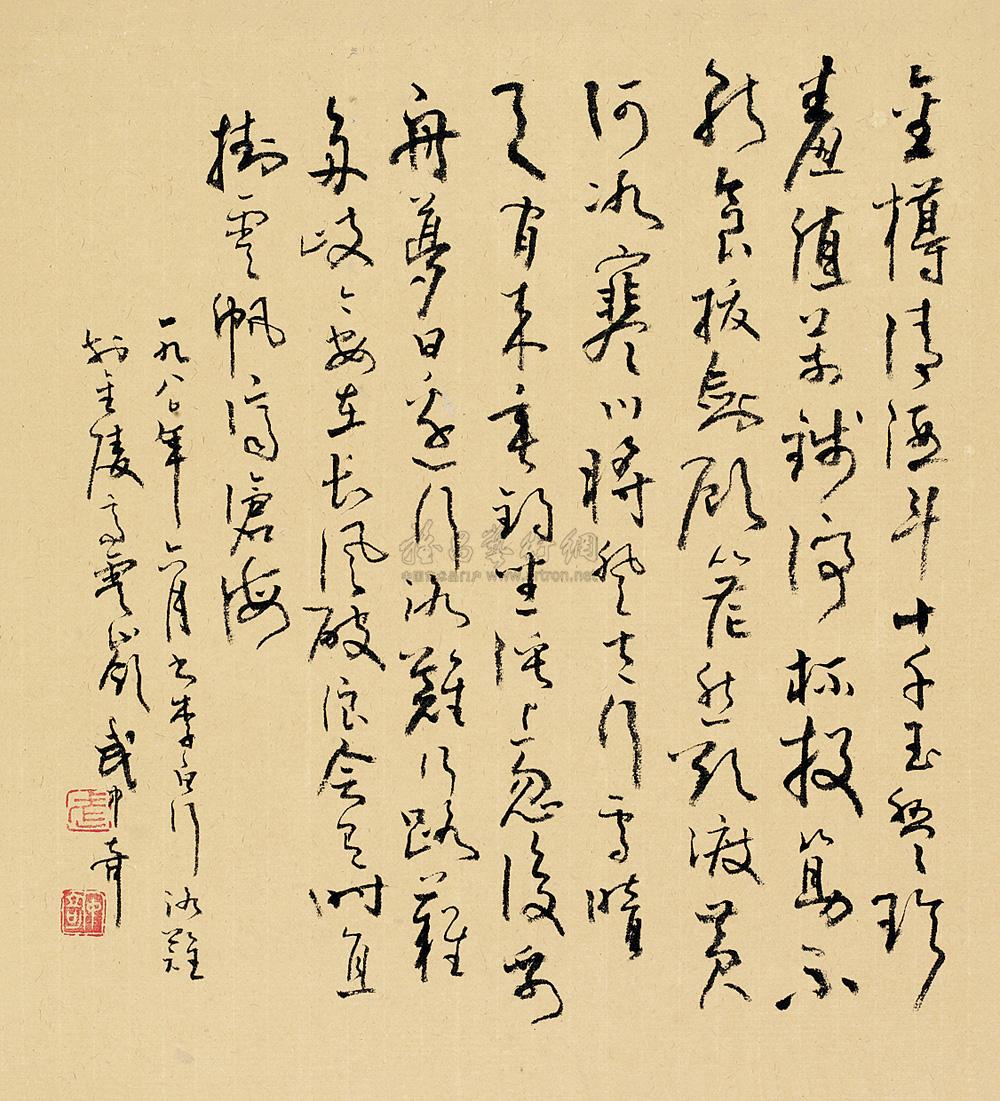 金樽清酒斗十千玉盤珍
羞值萬錢停杯投箸不
能食拔劍顧茫然欲渡黃
河冰塞川將登太行雪暗
天閒來垂釣坐溪上忽復乘
舟夢日邊行路難行路難
多歧今安在長風破浪會有時直
掛雲帆濟滄海
一九八〇年六月书李白行路難
於金陵高雲嶺武中奇
武
中奇
雅昌藝術網
artron.net